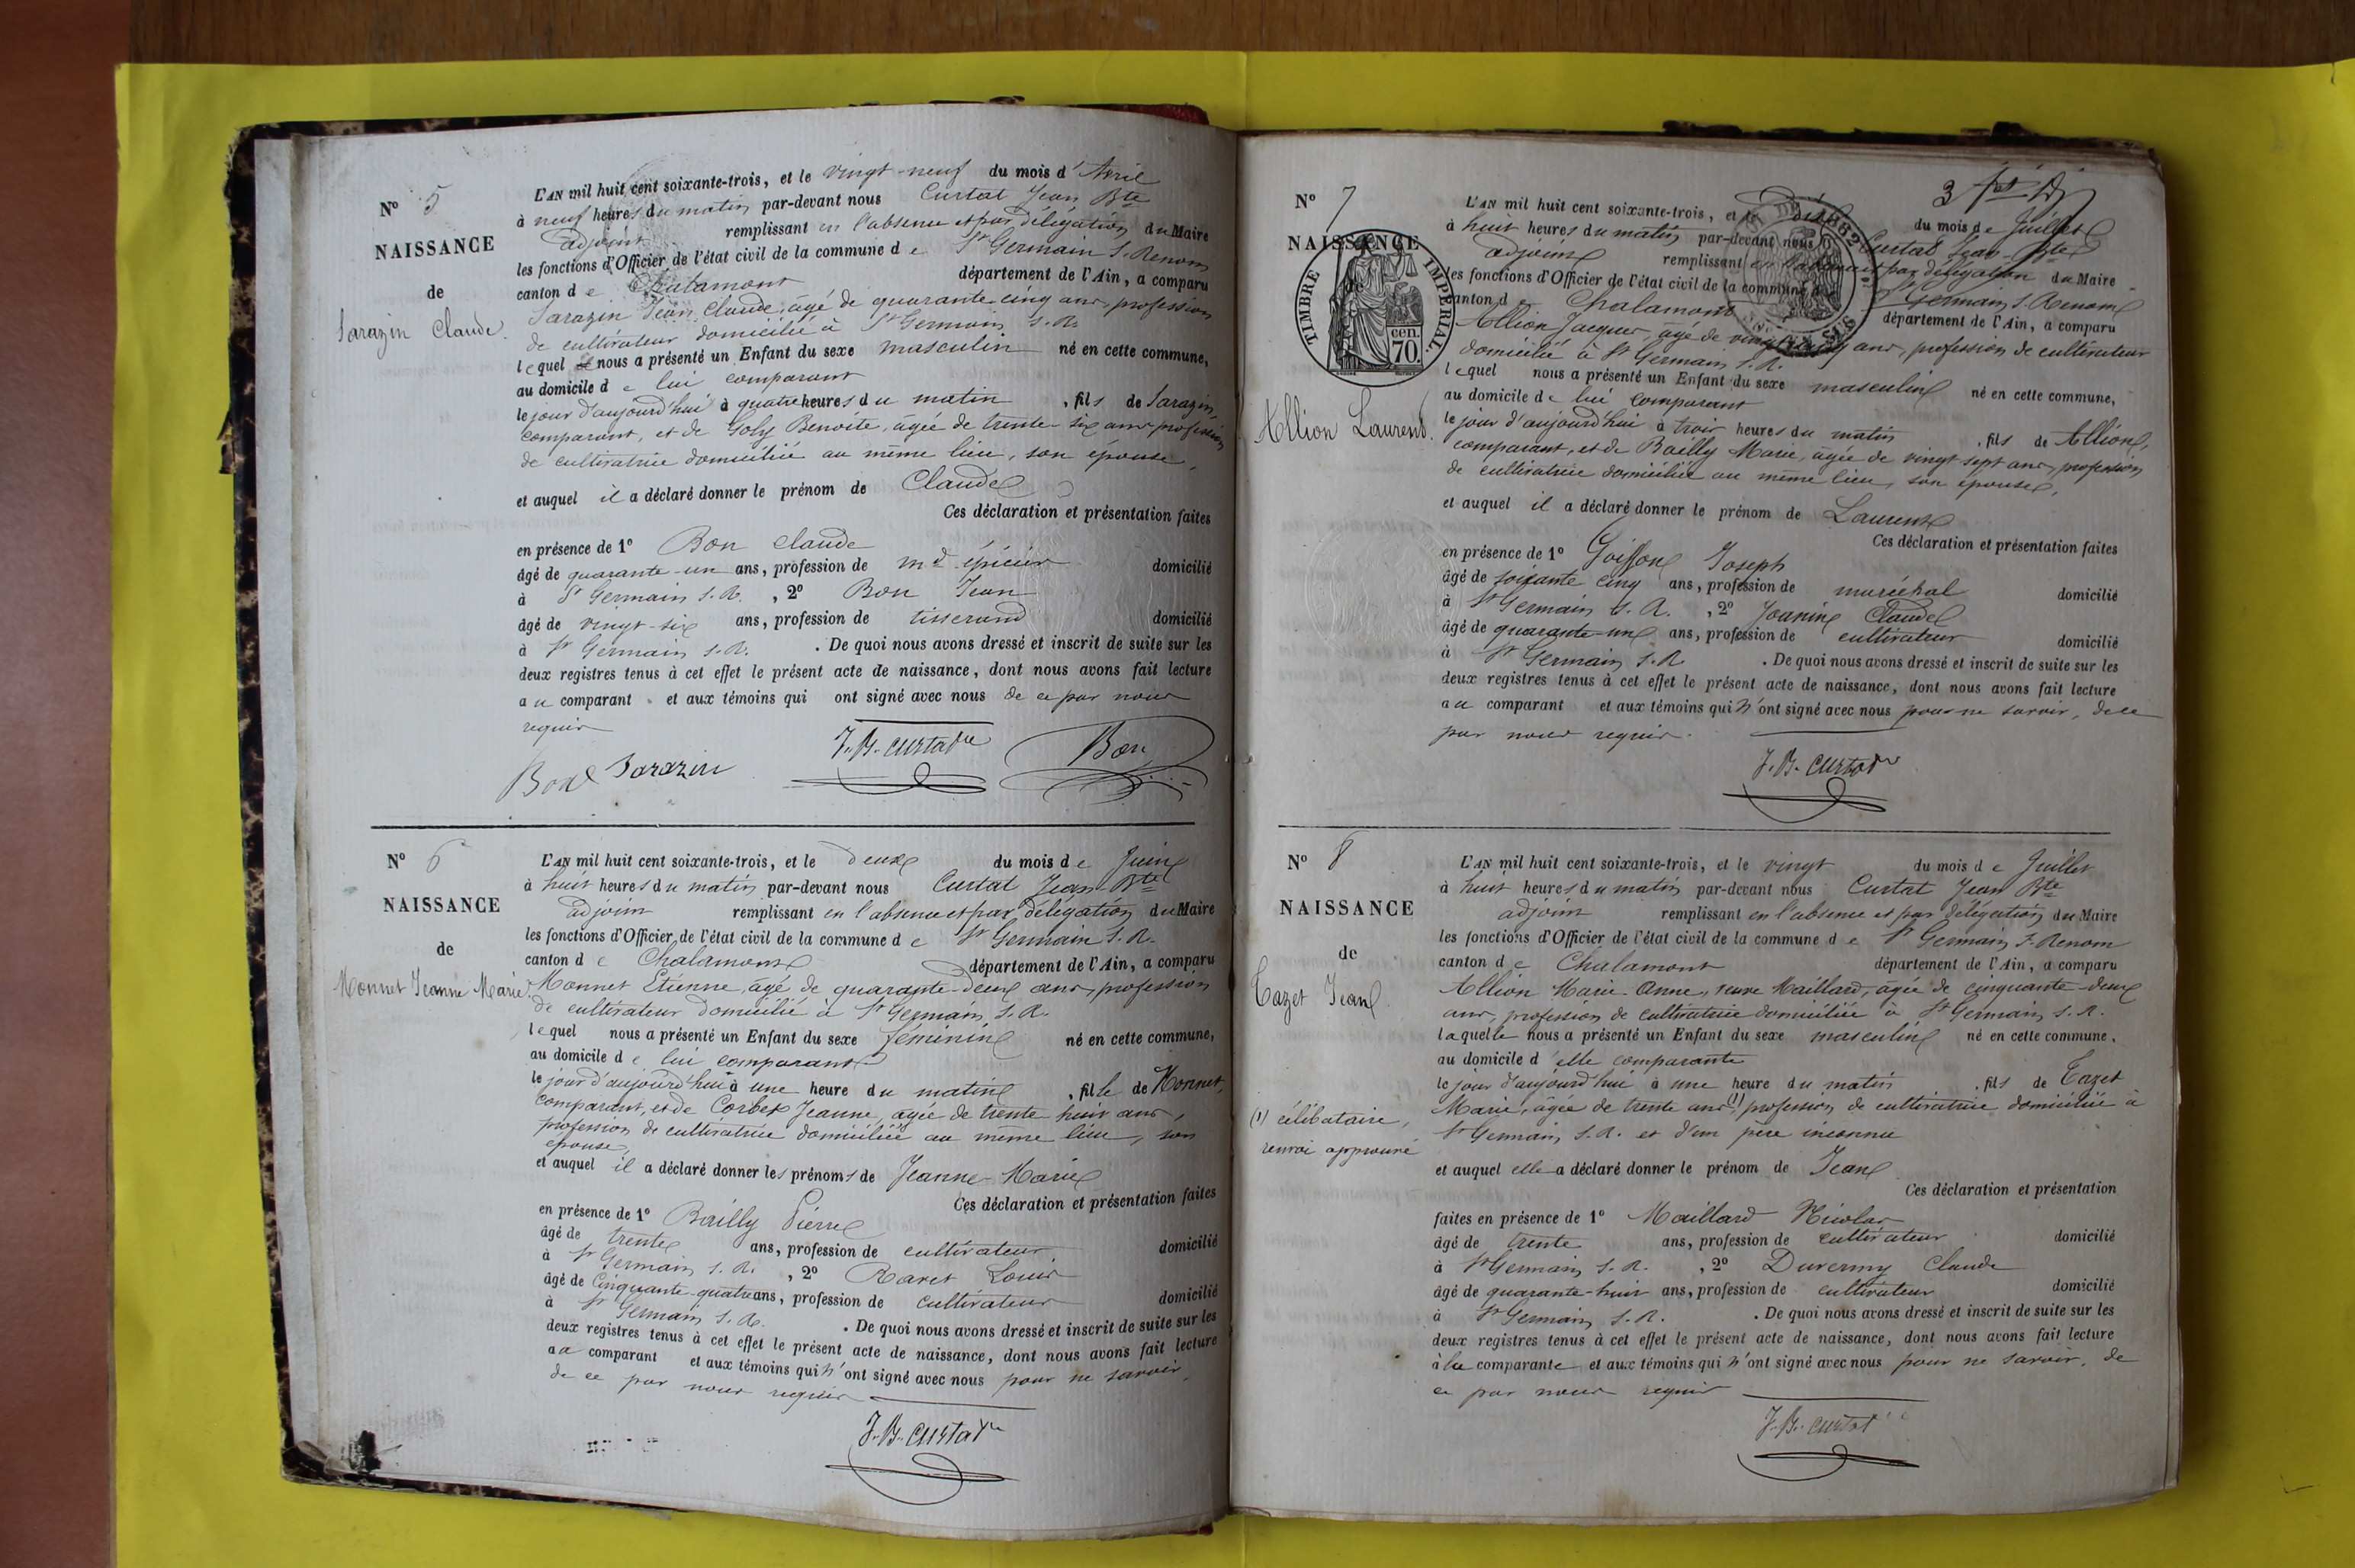 N° 5
NAISSANCE
de
Sarazin Claude.
L'AN mil huit cent soixante-trois, et le vingt-neuf du mois d'Avril
à neuf heures du matin par-devant nous Curtat Jean Bte
adjoint remplissant en l'absence et par délégation du Maire
les fonctions d'Officier de l'état civil de la commune de St Germain S. Renom
canton de Chalamont département de l'Ain, a comparu
Sarazin Jean Claude, âgé de quarante-cinq ans, profession
de cultivateur domicilié à St Germain S. R.
lequel nous a présenté un Enfant du sexe masculin né en cette commune,
au domicile de lui comparant
le jour d'aujourd'hui à quatre heures du matin, fils de Sarazin,
comparant, et de Goly Benoite, âgée de trente-six ans, profession
de cultivatrice domiciliée au même lieu, son épouse,
et auquel il a déclaré donner le prénom de Claude
Ces déclaration et présentation faites
en présence de 1° Bon Claude
âgé de quarante-un ans, profession de md épicier domicilié
à St Germain S. R., 2° Bon Jean
âgé de vingt-six ans, profession de tisserand domicilié
à St Germain S. R. . De quoi nous avons dressé et inscrit de suite sur les
deux registres tenus à cet effet le présent acte de naissance, dont nous avons fait lecture
au comparant et aux témoins qui ont signé avec nous de ce par nous
requis
Bon Sarazin J. B. Curtat Bon
N° 6
NAISSANCE
de
Monnet Jeanne Marie.
L'AN mil huit cent soixante-trois, et le deux du mois de Juin
à huit heures du matin par-devant nous Curtat Jean-Bte
adjoint remplissant en l'absence et par délégation du Maire
les fonctions d'Officier de l'état civil de la commune de St Germain S. R.
canton de Chalamont département de l'Ain, a comparu
Monnet Etienne, âgé de quarante-deux ans, profession
de cultivateur domicilié à St Germain S. R.
lequel nous a présenté un Enfant du sexe féminin né en cette commune,
au domicile de lui comparant
le jour d'aujourd'hui à une heure du matin, fille de Monnet,
comparant, et de Corbet Jeanne, âgée de trente huit ans,
profession de cultivatrice domiciliée au même lieu, son
épouse,
et auquel il a déclaré donner les prénoms de Jeanne-Marie
Ces déclaration et présentation faites
en présence de 1° Bailly Pierre
âgé de trente ans, profession de cultivateur domicilié
à St Germain S. R., 2° Ravet Louis
âgé de Cinquante-quatre ans, profession de cultivateur domicilié
à St Germain S. R. . De quoi nous avons dressé et inscrit de suite sur les
deux registres tenus à cet effet le présent acte de naissance, dont nous avons fait lecture
au comparant et aux témoins qui n'ont signé avec nous pour ne savoir,
de ce par nous requis
J. B. Curtat
3
N° 7
NAISSANCE
de
TIMBRE IMPÉRIAL.
cen
70.
Allion Laurent.
L'AN mil huit cent soixante-trois, et le dix du mois de Juillet
à huit heures du matin par-devant nous Curtat Jean-Bte
adjoint remplissant en l'absence et par délégation du Maire
les fonctions d'Officier de l'état civil de la commune de St Germain S. Renom
canton de Chalamont département de l'Ain, a comparu
Allion Jacques, âgé de ans, profession de cultivateur
domicilié à St Germain S. R.
lequel nous a présenté un Enfant du sexe masculin né en cette commune,
au domicile de lui comparant
le jour d'aujourd'hui à trois heures du matin, fils de Allion,
comparant, et de Bailly Marie, âgée de vingt sept ans, profession
de cultivatrice domiciliée au même lieu, son épouse,
et auquel il a déclaré donner le prénom de Laurent
Ces déclaration et présentation faites
en présence de 1° Goiffon Joseph
âgé de soixante cinq ans, profession de maréchal domicilié
à St Germain S. R., 2° Joanin Claude
âgé de quarante-un ans, profession de cultivateur domicilié
à St Germain S. R . De quoi nous avons dressé et inscrit de suite sur les
deux registres tenus à cet effet le présent acte de naissance, dont nous avons fait lecture
au comparant et aux témoins qui n'ont signé avec nous pour ne savoir, de ce
par nous requis.
J. B. Curtat
N° 8
NAISSANCE
de
Cazet Jean
(1) célibataire,
renvoi approuvé
L'AN mil huit cent soixante-trois, et le vingt du mois de Juillet
à huit heures du matin par-devant nous Curtat Jean Bte
adjoint remplissant en l'absence et par délégation du Maire
les fonctions d'Officier de l'état civil de la commune de St Germain S. Renom
canton de Chalamont département de l'Ain, a comparu
Allion Marie-Anne, veuve Maillard, âgée de cinquante-deux
ans, profession de cultivatrice domiciliée à St Germain S. R.
laquelle nous a présenté un Enfant du sexe masculin né en cette commune,
au domicile d'elle comparante
le jour d'aujourd'hui à une heure du matin, fils de Cazet
Marie, âgée de trente ans (1), profession de cultivatrice domiciliée à
St Germain S. R. et d'un père inconnu
et auquel elle a déclaré donner le prénom de Jean
Ces déclaration et présentation
faites en présence de 1° Maillard Nicolas
âgé de trente ans, profession de cultivateur domicilié
à St Germain S. R., 2° Duverny Claude
âgé de quarante-huit ans, profession de cultivateur domicilié
à St Germain S. R. . De quoi nous avons dressé et inscrit de suite sur les
deux registres tenus à cet effet le présent acte de naissance, dont nous avons fait lecture
à la comparante et aux témoins qui n'ont signé avec nous pour ne savoir, de
ce par nous requis
J. B. Curtat